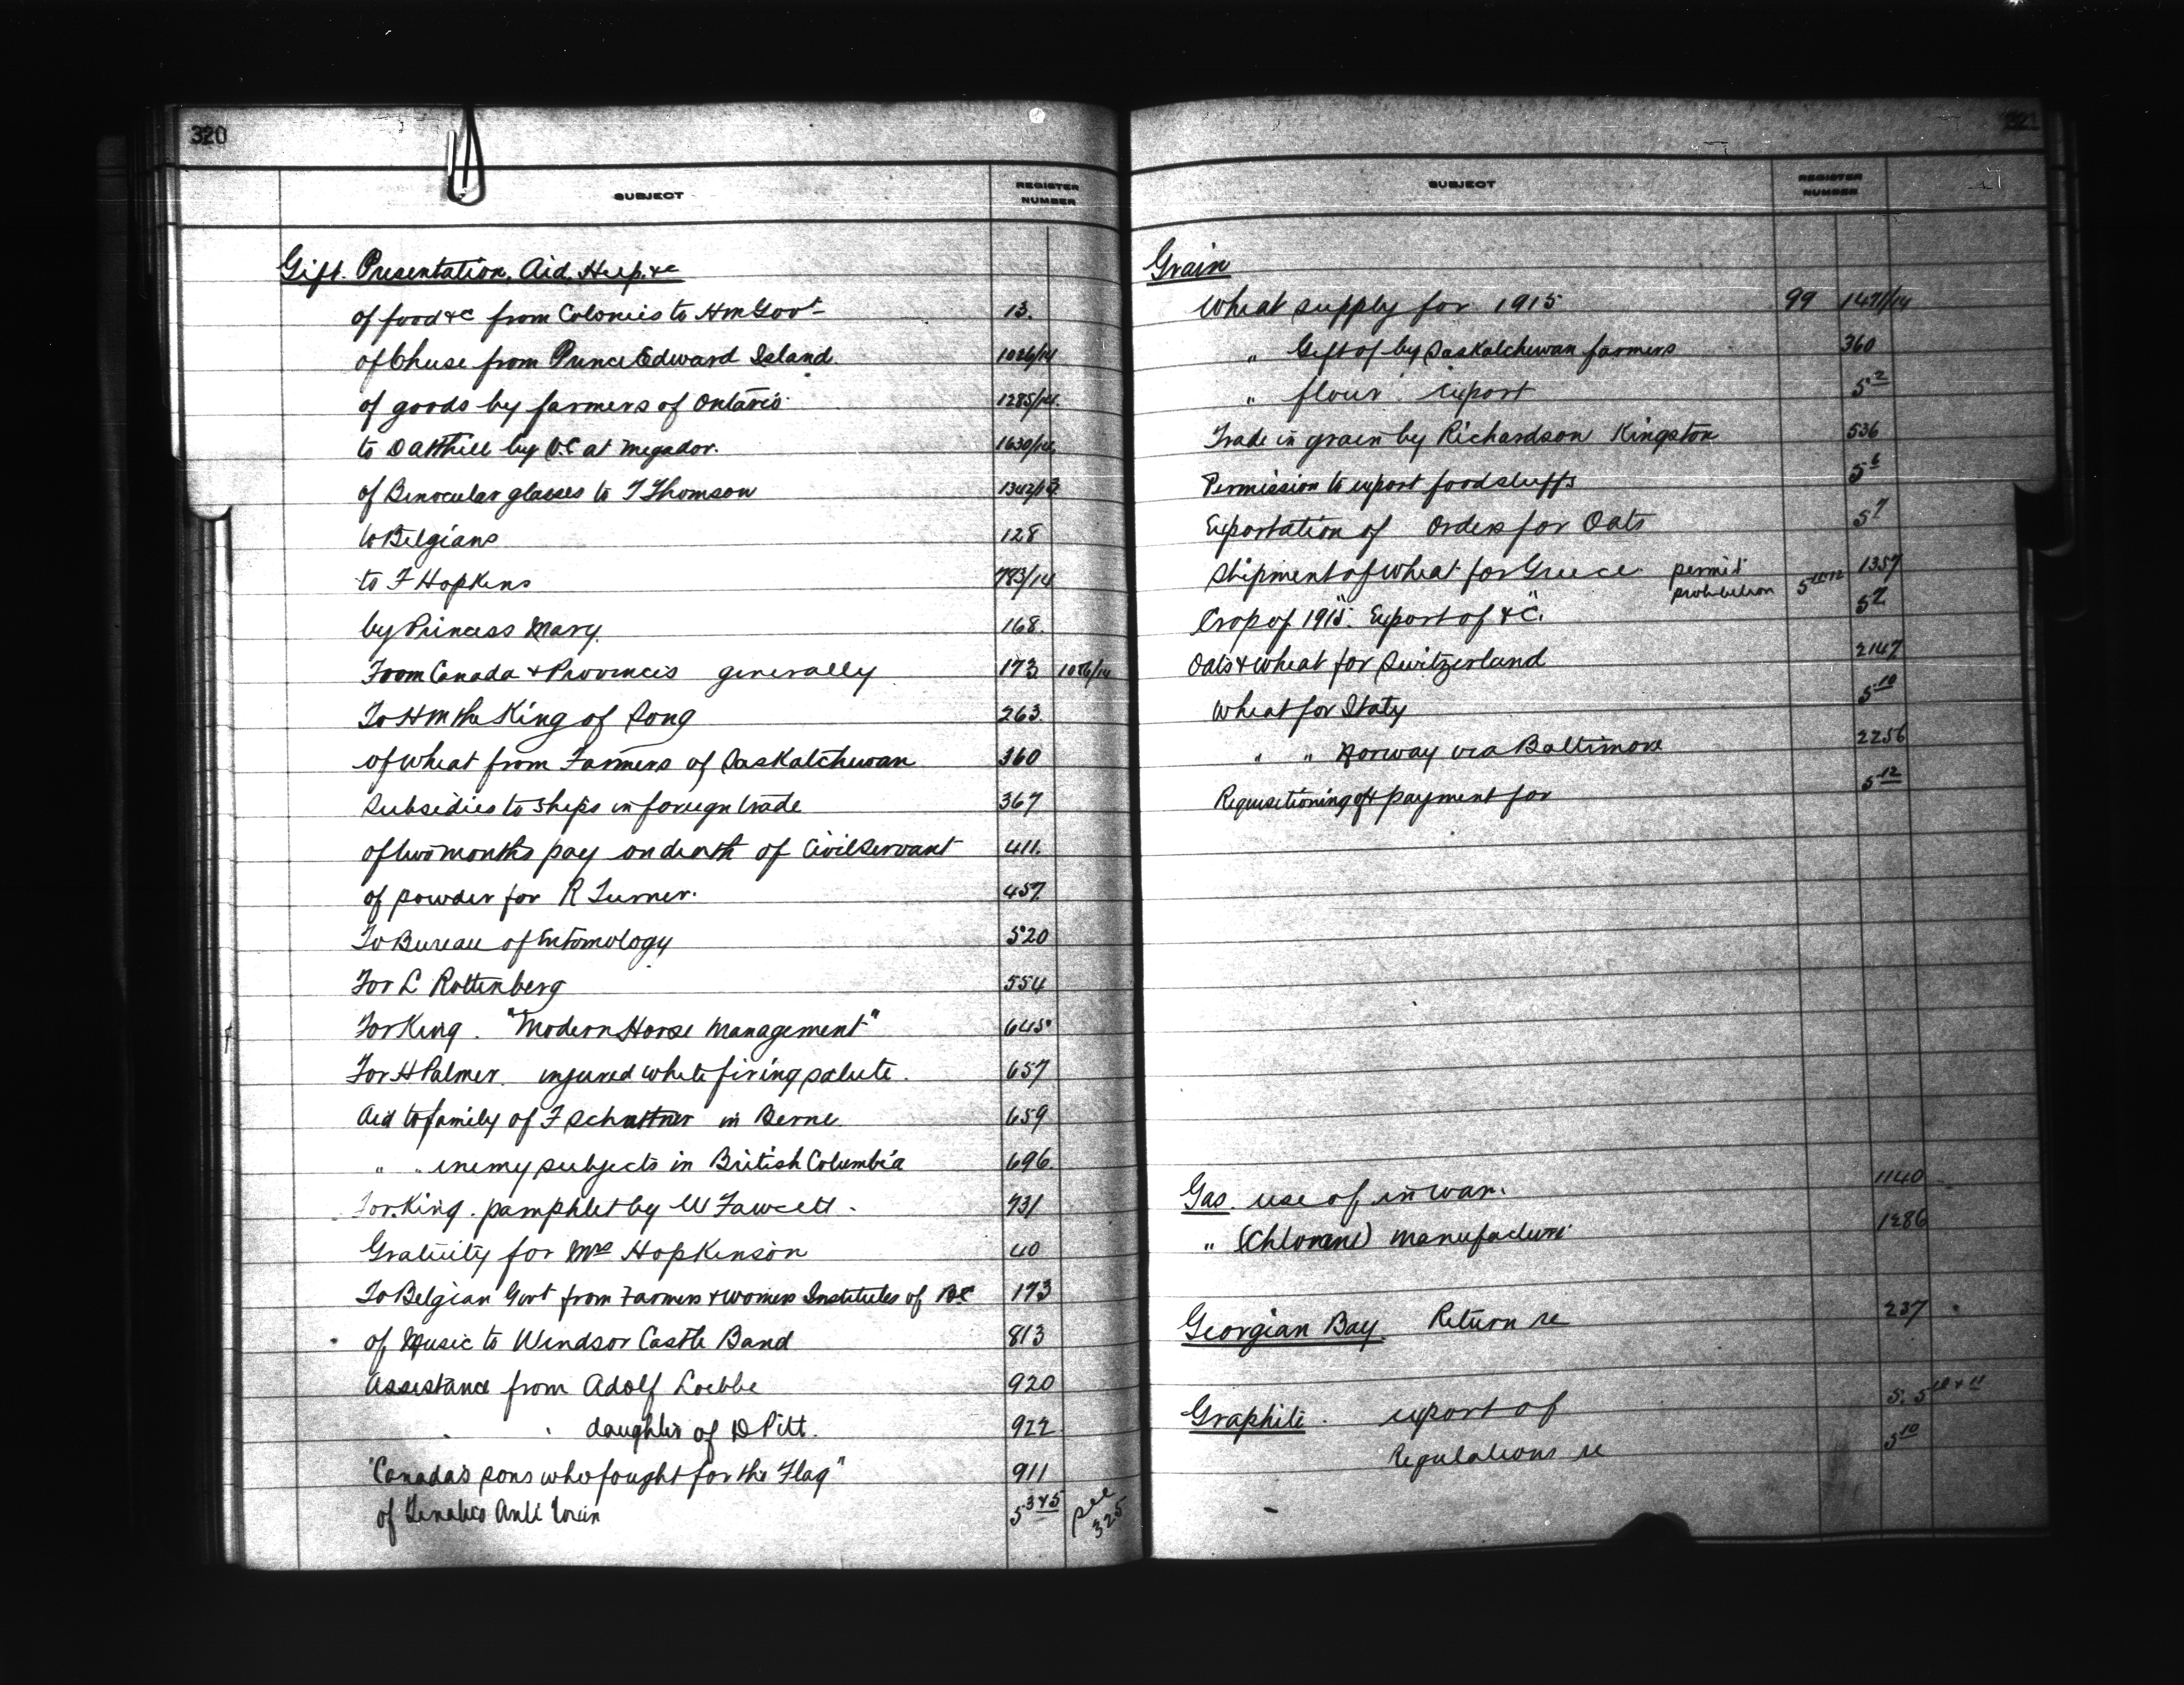 320
SUBJECT REGISTER NUMBER
Gift. Presentation, Aid, Help. &c
of food &c from Colonies to HM Govt 13.
of Cheese from Prince Edward Island 1026/14
of goods by farmers of Ontario 1285/14.
to Oakhill by V.C at Mogador. 1630/14.
of Binocular glasses to T Thomson 1342/13
to Belgians 128
to F Hopkins 783/14
by Princess Mary. 168.
From Canada & Provinces generally 173 1086/14
To HM the King of Song 263.
of wheat from Farmers of Saskatchewan 360
Subsidies to Ships in foreign trade 367
of two months pay on death of Civil Servant 411.
of powder for R Turner. 457
To Bureau of Entomology 520
For L Rottenberg 554
For King. "Modern Horse Management" 645
For H Palmer. injured while firing salute. 657
Aid to family of F in Berne. 659
" " enemy subjects in British Columbia 696.
For King. pamphlet by W Fawcett. 731
Gratuity for Mrs Hopkinson 40
To Belgian Govt from Farmers & womens Institutes of BC 173
of Music to Windsor Castle Band 813
Assistance from Adolf Loebbe 920
" " daughter of D Pitt. 922
"Canada's sons who fought for the Flag" 911
of 5 3 & 5 see 325
321
SUBJECT REGISTER NUMBER
Grain
Wheat supply for 1915 99 1471/14
" Gift of by Saskatchewan farmers 360
" flour export 5 2
Trade in grain by Richardson Kingston 536
Permission to export foodstuffs 5 6
Exportation of Orders for Oats 5 7
Shipment of wheat for Greece permit 1357
prohibition
Crop of 1915. Export of &c. 5 7
Oats & wheat for Switzerland 2147
Wheat for Italy 5 10
" " Norway via Baltimore 2256
Requisitioning of & payment for 5 12
Gas. use of in war. 1140
" (Chlorine) manufacture 1286
Georgian Bay. Return re 237
Graphite. export of 5. 5 10 & 11
Regulations re 5 10